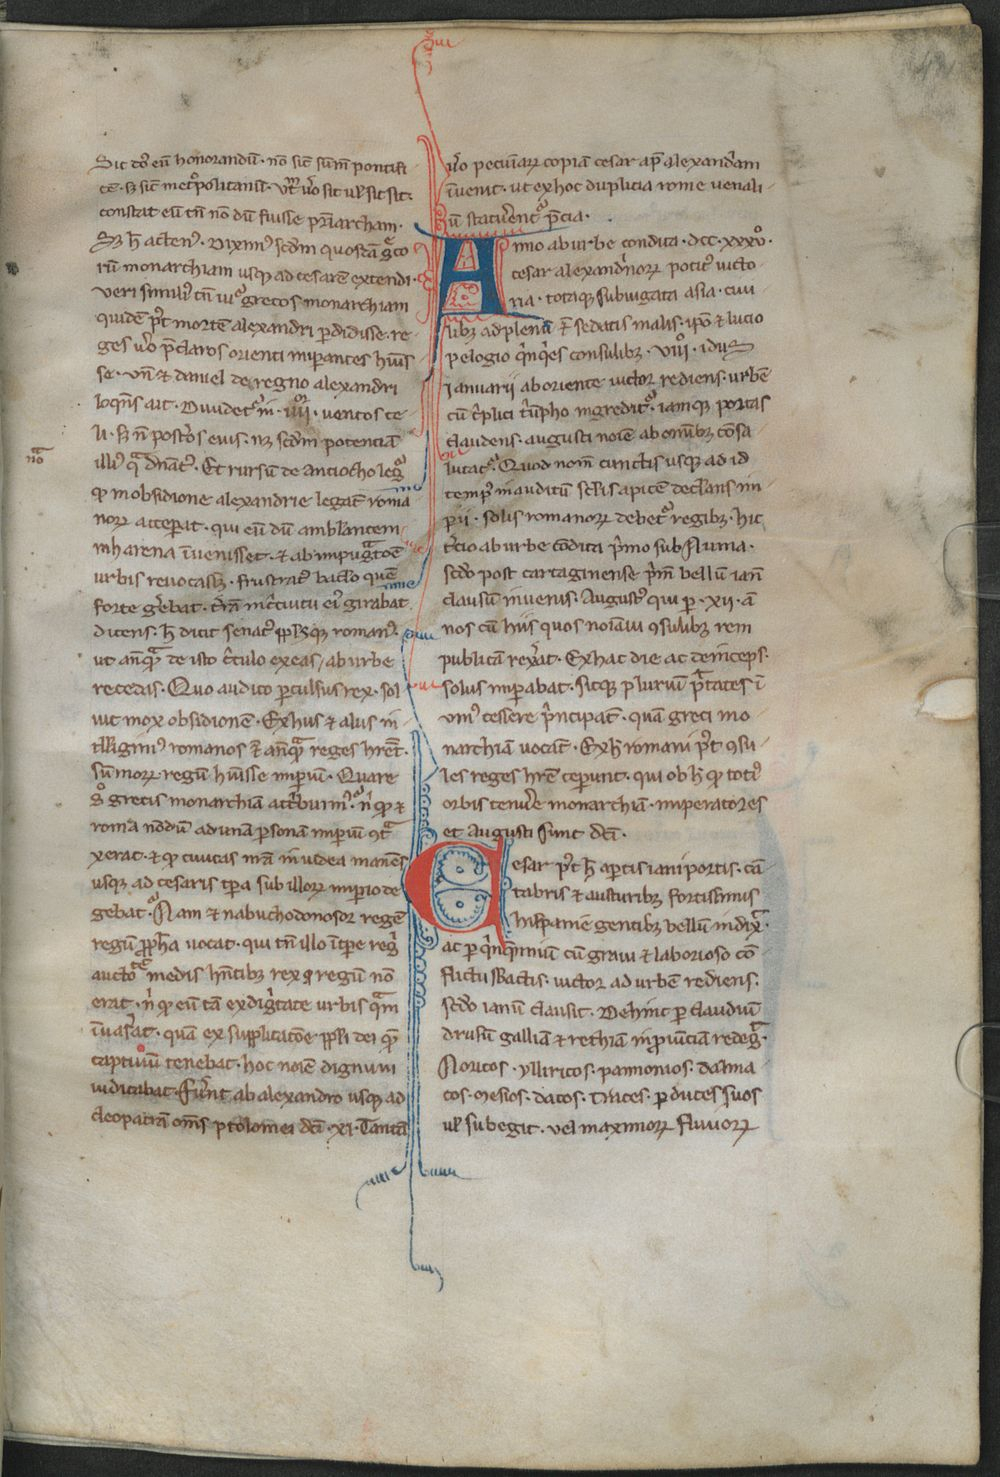 Sic dōs eū honorandū · nō sic̄ sūm̄ pontifi
cē · s; sic̄ metᵒpolitanū · Vtᵐ ūo sit ul̄ sit sit ·
constat eū tn̄ nō dū fuisse pr̄iarcham ·
S; h̄ actenꝰ · Diximꝰ sc̄dm quosdā gᵃco
rū monarchiam usqꝫ ad cesarē extendi ·
veri similiꝰ tn̄ uiᵒ grecos monarchiam
quidē pꝰt mortē alexandri ꝑdidisse · re
ges ūo p̄claros orienti imperantes hūis
se · Vn̄ ⁊ daniel de regno alexandri
loqn̄s ait · Diuidet᷑ in · iiiior · uentos ce
li · s; n̄ postōs eius · nꝫ sc̄dm potenciā
nō
illiꝰ qᵃ dn̄atꝰ · Et rursū de antiocho legᵒ
qꝫ in obsidione alexandrie legatꝰ roma
norꝫ acceꝑat · qui eū dū amblantem
in harena īuenisset · ⁊ ab impugᵃtoē
urbis reuocass; · frustratꝰ baclo quē
forte gērebat · t̄rā in cᵉuitu eiꝰ girabat
dicens · h̄ dicit senatꝰ ppl̄sqꝫ romanꝰ ·
ut anqᵃ de isto cᵉculo exeas / ab urbe
recedas · Quo audito ꝑculsus rex · sol
uit mox obsidionē · Ex hiis ⁊ aliis in
tᵉlligimꝰ romanos ⁊ anqᵃ reges hr̄ēt ·
sūmorꝫ regū hūisse imperiū · Quare
ḡ grecis monarchiā attᵉbuimꝰ · nⁱ qꝫ ⁊
roma nōdū ad unā ꝑsonā imperiū 9tᵃ
xerat · ⁊ qꝫ ciuitas nrā in iudea manēs
usqꝫ ad cesaris tp̄a sub illorꝫ imperio de
gebat · Nam ⁊ nabuchodonosor regē
regū ppħa uocat · qui tn̄ illo ītpē regⁱ
auctōte medis hn̄tibꝫ rex regū nō
erat · nⁱ qꝫ eū tā ex digⁱtate urbis qᵃm
īuas̄at · quā ex supplicatōe ppl̄i dei qᵐ
captiuū tenebat · hoc noīe dignum
iudicabat · Fūnt ab alexandro usqꝫ ad
cleopatrā om̄s ptolomei dc̄i · xi · Tantā
ūo pecuniarꝫ copiā cesar apꝰ alexandⁱam
īuenit · ut ex hoc duplicia rome uenali
ū statūent᷑ p̄cia ·
Anno ab urbe condita · dcc · xxxvᵒ ·
cesar alexandⁱnorꝫ potitꝰ uicto
ria · totaqꝫ subiugata asia · ciui
libꝫ ad plenū ēt sedatis malis · ipō ⁊ lucio
pelogio qⁱnqⁱes consulibꝫ · viiiᵒ · idus
ianuarii ab oriente uictor rediens · urbē
cū tⁱplici tⁱūpho ingredit᷑ · iamqꝫ portas
claudens · augusti noīe ab om̄ibꝫ cōsa
lutat᷑ · Quod nom̄ cunctis usqꝫ ad id
tempꝰ inauditū sc̄lis apicē declarās im
perii · solis romanorꝫ debet᷑ regibꝫ · hic
tᵉcio ab urbe cōdita pⁱmo sub Numa ·
sc̄do post cartaginense pⁱm̄ bellū ianᵐ
clausū inueniēs · Augustꝰ qui ꝑ · xii · ā
nos cū hiis quos noīaui 9sulibꝫ rem
publicā rex̄at · Ex hac die ac deinceps ·
solus imperabat · sicqꝫ plurium p̄tates ī
uniꝰ cessere pⁱncipatꝰ · quā greci mo
narchiā uocāt · Ex h̄ romani pꝰt 9su
les reges hr̄e ceperunt · qui ob h̄ qꝫ totiꝰ
orbis tenūe monarchiā · imperatores
et augusti sunt dc̄i ·
Cesar pꝰt h̄ aptis iani portis · cā
tabris ⁊ austuribꝫ fortissimis
hispanie gentibꝫ bellū indixᵗ
ac ꝑ qⁱnqᵉnniū cū graui ⁊ laborioso cō
flictu subactis · uictor ad urbē rediens ·
sc̄do ianū clausit · Dehinc ꝑ claudiū
drusū galliā ⁊ rethiā in prouinciā redegᵗ
Noricos · ylliricos · pannonios · dalma
tos · Mesios · dacos · traces · ꝑ duces suos
ul̄ subegit · vel maximorꝫ fluuiorꝫ